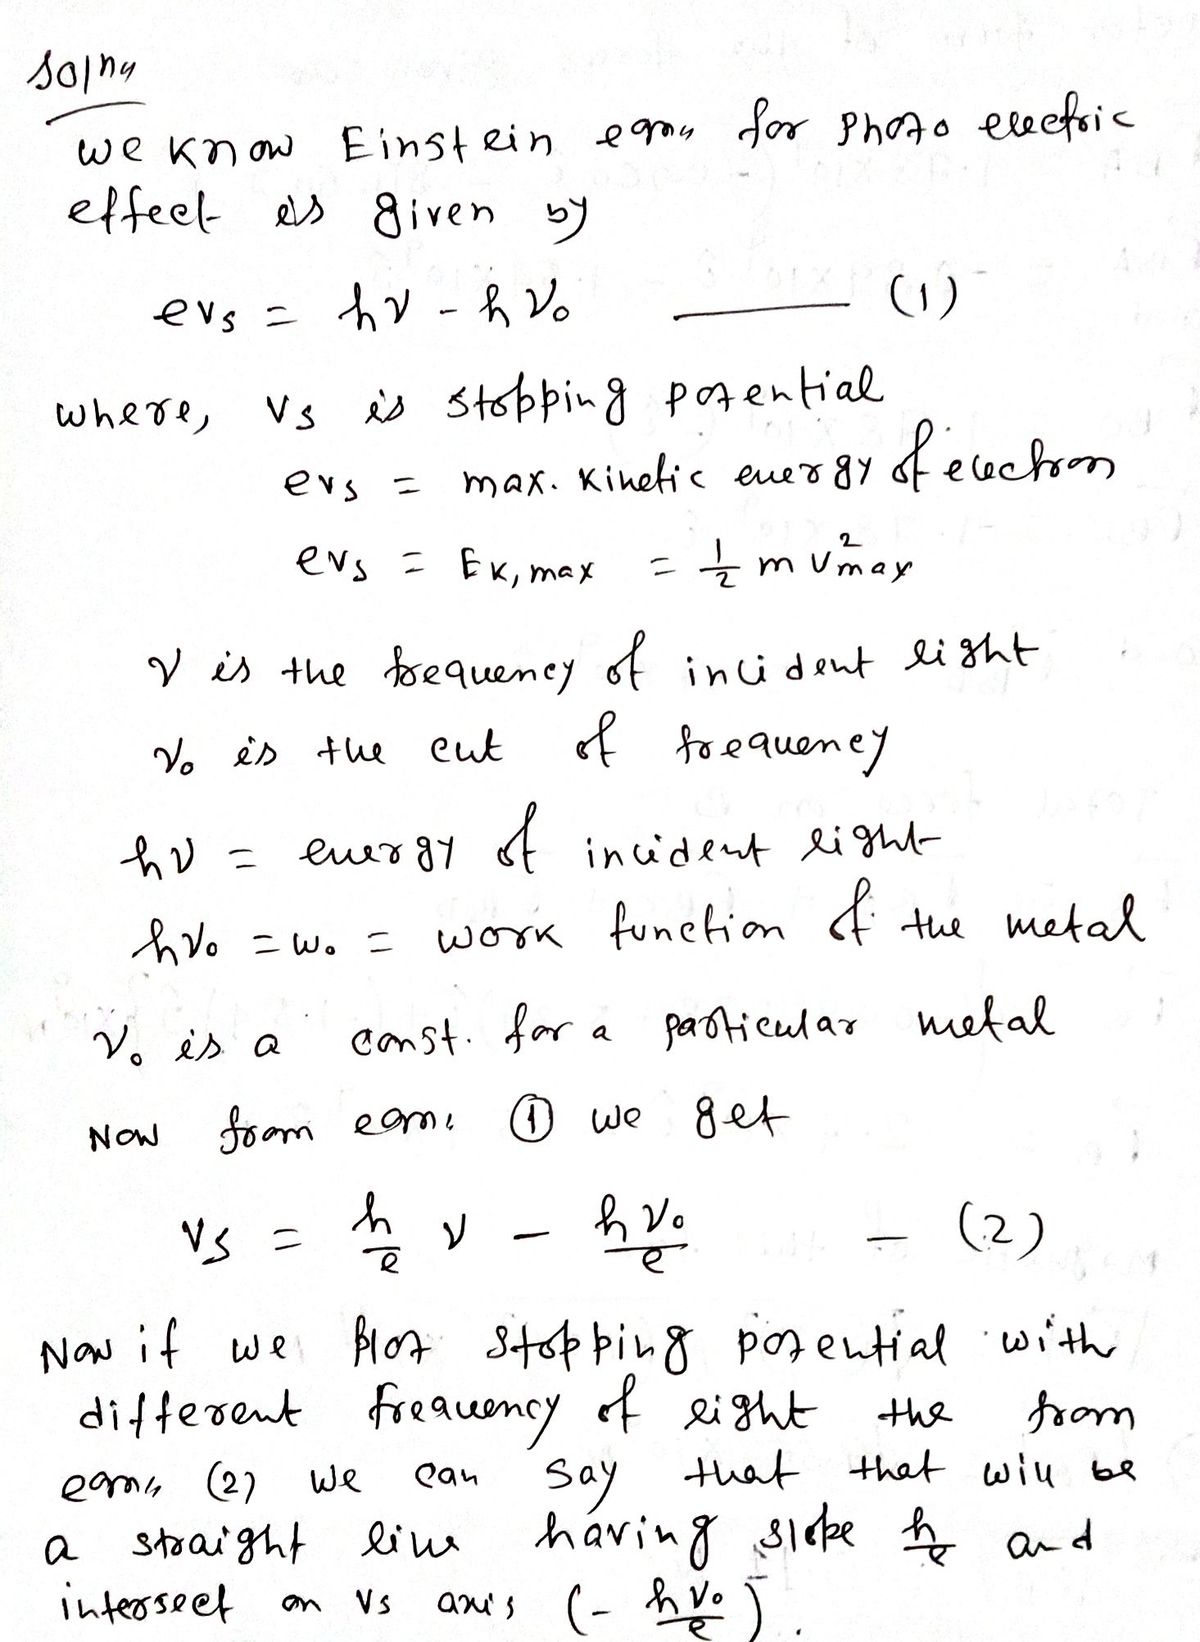 Soln
we know Einstein eqn for photo electric
effect is given by
eVs = hν - hν₀ ——— (1)
where, Vs is stopping potential
eVs = max. kinetic energy of electron
eVs = EK, max = 1/2 m v²max
ν is the frequency of incident light
ν₀ is the cut of frequency
hν = energy of incident light
hν₀ = W₀ = work function of the metal
ν₀ is a const. for a particular metal
Now from eqn: ① we get
Vs = h/e ν - hν₀/e - (2)
Now if we plot stopping potential with
different frequency of light the from
eqn (2) we can say that that will be
a straight line having slope h/e and
intersect on Vs axis (- hν₀/e).